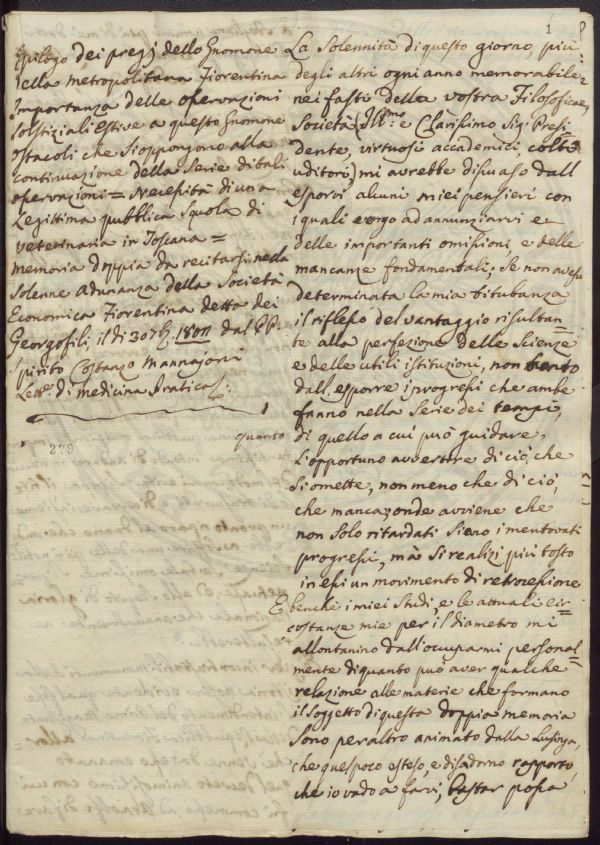 Epilogo dei pregj dello Gnomone
della metropolitana Fiorentina
Importanza delle osservazioni
solstiziali estive a questo Gnomone
ostacoli che si oppongono alla
continuazione della serie di tali
osservazioni = Necessità di una
Legittima pubblica Squola di
veterinaria in Toscana =
memoria doppia da recitarsi nella
solenne adunanza della Società
Economica Fiorentina detta dei
Georgofili, il dì 30 7b. 1801 dal P.P.
Spirito Costanzo Mannajoni
Lett.e di medicina Pratica
279
quanto
1
La Solennità di questo giorno, più
degli altri ogni anno memorabile
nei fasti della vostra Filosofica
Società (Ill.mo e Clarissimo Sig.r Presi=
dente, virtuosi accademici colti
uditori) mi avrebbe dissuaso dall
esporvi alcuni miei pensieri con
i quali vengo ad annunziarvi e
delle importanti omissioni e delle
mancanze fondamentali; se non avesse
determinata la mia titubanza
il riflesso del vantaggio risultan=
te alla perfezione delle Scienze
e delle utili istituzioni, non tanto
dall esporre i progressi che ambe
fanno nella serie dei tempi,
di quello a cui può guidare,
L'opportuno avvertire di ciò, che
si omette, non meno che di ciò,
che manca; onde avviene che
non solo ritardati siano i mentovati
progressi, mà si realizi più tosto
in essi un movimento di retrocessione
E benche i miei studi, e le attuali cir=
costanze mie per il diametro mi
allontanino dall'occuparmi personal=
mente di quanto può aver qualche
relazione alle materie che formano
il soggetto di questa doppia memoria
sono peraltro animato dalla Lusinga,
che quel poco esteso, e disadorno rapporto,
che io vado a farvi, bastar possa